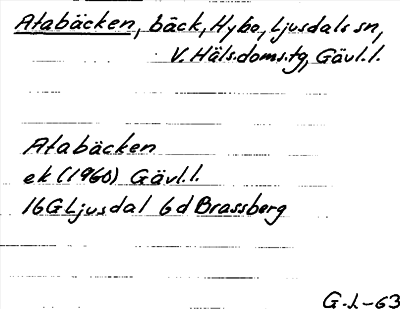 Atabäcken, bäck, Hybo, Ljusdals sn,
V. Häls.doms.tg, Gävl.l.
Atabäcken
ek (1960) Gävl.l.
16G Ljusdal 6d Brassberg
G.J.-63